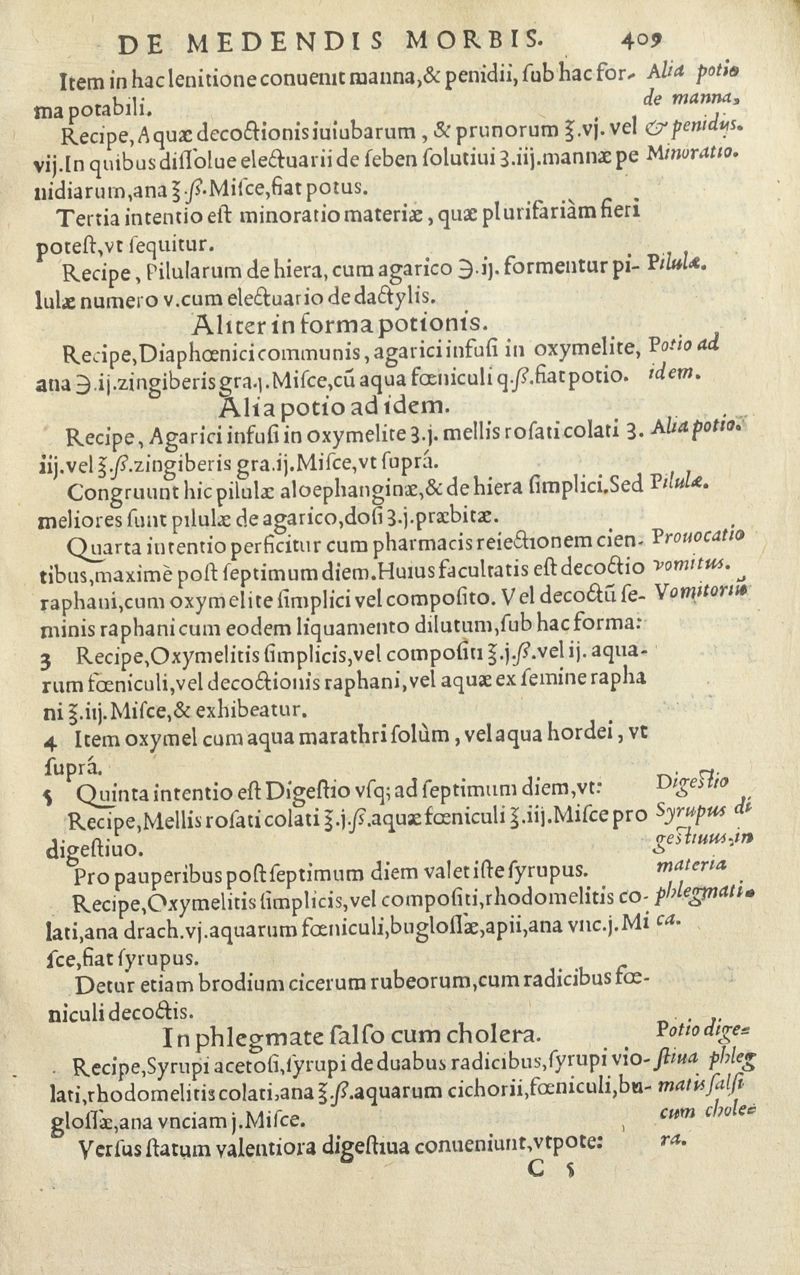 DE MEDENDIS MORBIS. 409
Item in hac lenitione conuenit manna,& penidii, ſub hac for- Alia potio
ma potabili. de manna,
Recipe, Aquæ decoctionis iuiubarum , & prunorum ℥.vj. vel & penidijs.
vij.In quibus diſſolue electuarii de ſeben ſolutiui ʒ.iij.mannæ pe Minoratio.
nidiarum,ana ℥.ß.Miſce,fiat potus.
Tertia intentio eſt minoratio materiæ, quæ plurifariàm fieri
poteſt,vt ſequitur.
Recipe, Pilularum de hiera, cum agarico ℈.ij. formentur pi- Pilulæ.
lulæ numero v.cum electuario de dactylis.
Aliter in forma potionis.
Recipe,Diaphœnici communis, agarici infuſi in oxymelite, Potio ad
ana ℈.ij.zingiberis gra.j.Miſce,cũ aqua fœniculi q.ß.fiat potio. idem.
Alia potio ad idem.
Recipe, Agarici infuſi in oxymelite ʒ.j. mellis roſati colati ʒ. Alia potio.
iij.vel ℥.ß.zingiberis gra.ij.Miſce,vt ſuprá.
Congruunt hic pilulæ aloephanginæ,& de hiera ſimplici.Sed Pilulæ.
meliores ſunt pilulæ de agarico,doſi ʒ.j.præbitæ.
Quarta intentio perficitur cum pharmacis reiectionem cien- Prouocatio
tibus,maximè poſt ſeptimum diem.Huius facultatis eſt decoctio vomitus.
raphani,cum oxymelite ſimplici vel compoſito. Vel decoctũ ſe- Vomitoriũ
minis raphani cum eodem liquamento dilutum,ſub hac forma:
3 Recipe,Oxymelitis ſimplicis,vel compoſiti ℥.j.ß.vel ij. aqua-
rum fœniculi,vel decoctionis raphani, vel aquæ ex ſemine rapha
ni ℥.iij.Miſce,& exhibeatur.
4 Item oxymel cum aqua marathri ſolùm, vel aqua hordei, vt
ſuprá.
5 Quinta intentio eſt Digeſtio vſq; ad ſeptimum diem,vt: Digeſtio
Recipe,Mellis roſati colati ℥.j.ß.aquæ fœniculi ℥.iij.Miſce pro Syrupus di
digeſtiuo. geſtiuus in
Pro pauperibus poſt ſeptimum diem valet iſte ſyrupus. materia
Recipe,Oxymelitis ſimplicis,vel compoſiti,rhodomelitis co- phlegmati-
lati,ana drach.vj.aquarum fœniculi,bugloſſæ,apii,ana vnc.j.Mi ca.
ſce,fiat ſyrupus.
Detur etiam brodium cicerum rubeorum,cum radicibus fœ-
niculi decoctis.
In phlegmate ſalſo cum cholera. Potio dige-
Recipe,Syrupi acetoſi,ſyrupi de duabus radicibus,ſyrupi vio- ſtiua phleg
lati,rhodomelitis colati,ana ℥.ß.aquarum cichorii,fœniculi,bu- matis ſalſi
gloſſæ,ana vnciam j.Miſce. cum chole-
Verſus ſtatum valentiora digeſtiua conueniunt,vtpote: ra.
C 5